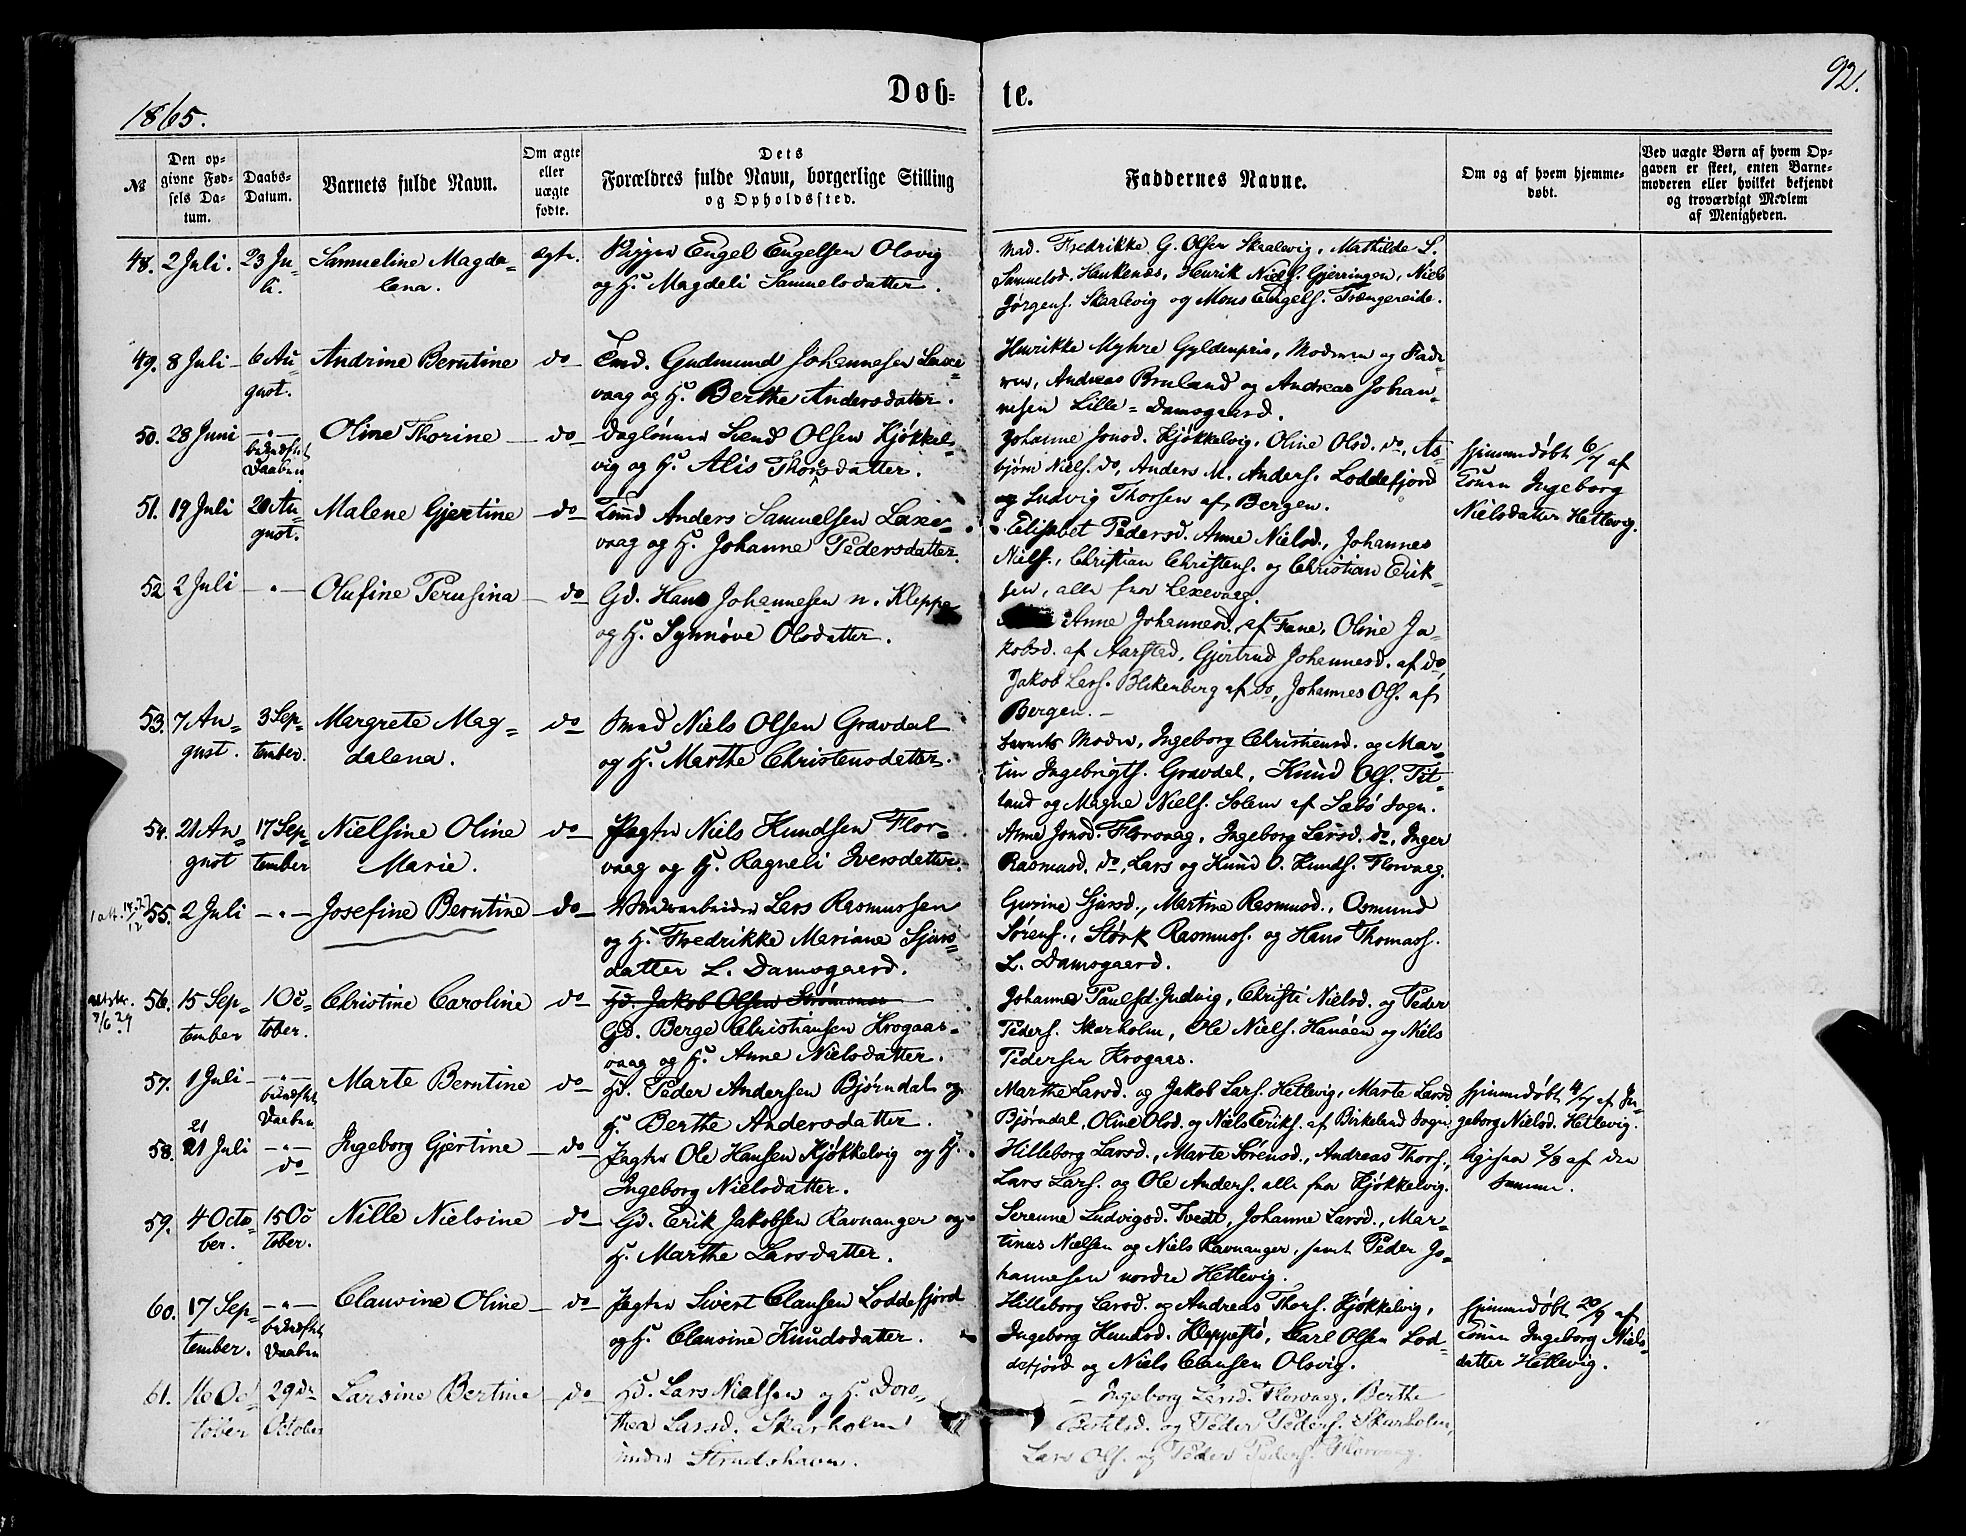 1865.
Døb-
te.
92.
№
Den op-
givne Fød-
sels Da-
tum.
Daabs-
Datum.
Barnets fulde Navn.
Om ægte
eller
uægte
fødte.
Dets
Forældres fulde Navn, borgerlige Stilling
og Opholdssted.
Faddernes Navne.
Om og af hvem hjemme-
døbt.
Ved uægte Børn af hvem Op-
gaven er skeet, enten Barne-
moderen eller hvilket bekjendt
og troværdigt Medlem
af Menigheden.
48. 2 Juli. 23 Ju-
li.
Samueline Magda-
lena.
ægte.
Engel Engelsen Olsvig
og H. Magdeli Samuelsdatter.
Mad. Fredrikke G. Olsen Skaalevig, Mathilde S.
Samuelsd. Haukenæs, Henrik Niels. Gjerringen, Niels
Jørgens. Skaalevig og Mons Engels. Trængereide.
49. 8 Juli 6 Au-
gust.
Andrine Berntine
do
Gudmund Johannesen Laxe-
vaag og H. Berthe Andersdatter.
Henrikke Myhre Gyldenpris, Moderen og Fade-
ren, Andreas Bruland og Andreas Johan-
nesen Lille-Damsgaard.
50. 28 Juni -"-
bekræftet
Daaben
Oline Thorine
do
Daglønner Svend Olsen Kjøkkel-
vig og H. Alis Thorsdatter.
Johanne Jonsd. Kjøkkelvig, Oline Olsd. do, As-
bjørn Niels. do, Anders M. Anders. Loddefjord
og Ludvig Thorsen af Bergen.
hjemmedøbt 6/7 af
Konen Ingeborg
Nielsdatter Hetlevig.
51. 19 Juli 20 Au-
gust.
Malene Gjertine
do
Anders Samuelsen Laxe-
vaag og H. Johanne Pedersdatter.
Elisabet Pedersd. Anne Nielsd., Johannes
Niels., Christian Christens. og Christian Erik-
sen, alle fra Laxevaag.
52. 2 Juli -"-
Olufine Perusina
do
Gd. Hans Johannesen n. Kleppe
og H. Synnøve Olsdatter.
Anne Johannesd. af Fane, Oline Ja-
kobsd. af Aarstad, Gjertrud Johannesd. af do,
Jakob Lars. Blekenberg af do, Johannes Ols. af
Bergen.
53. 7 Au-
gust. 3 Sep-
tember.
Margrete Mag-
dalena.
do
Niels Olsen Gravdal
og H. Marthe Christensdatter.
Barnets Moder, Ingeborg Christensd. og Mar-
tin Ingebrigts. Gravdal, Knud Ols. Tit-
land og Magne Niels. Solem af Sæbø Sogn.
54. 21 Au-
gust 17 Sep-
tember
Nielsine Oline
Marie.
do
Pagter Niels Knudsen Flor-
vaag og H. Ragneli Iversdatter.
Anne Jonsd. Florvaag, Ingeborg Larsd. do, Inger
Rasmusd. do, Lars og Knud O. Knuds. Florvaag.
55. 2 Juli -"-
Josefine Berntine
do
Lars Rasmussen
og H. Fredrikke Mariane Sjurs-
datter L. Damsgaard.
Gurine Sjursd., Martine Rasmusd., Osmund
Sørens., Størk Rasmuss. og Hans Thomass.
L. Damsgaard.
56. 15 Sep-
tember 1 Oc-
tober.
Christine Caroline
do
Gd. Jakob Olsen Strømsnes
Gd. Berge Christiansen Krogaas-
vaag og H. Anne Nielsdatter.
Johanne Paulsd. Christi Nielsd. og Peder
Peders. Skarholm, Ole Niels. Hanøen og Niels
Pedersen Krogaas.
57. 1 Juli -"-
bekræftet
Daaben
Marte Berntine
do
H. Peder Andersen Bjørndal og
H. Berthe Andersdatter.
Marthe Larsd. og Jakob Lars. Hetlevig, Marte Larsd.
Bjørndal, Oline Olsd. og Niels Eriks. af Birkeland Sogn.
hjemmedøbt 4/7 af In-
geborg Nielsd. Hetlevig.
58. 21 Juli -"-
do
Ingeborg Gjertine
do
Pagter Ole Hansen Kjøkkelvig og H.
Ingeborg Nielsdatter.
Hilleborg Larsd., Marte Sørensd., Andreas Thors.,
Lars Lars. og Ole Anders. alle fra Kjøkkelvig.
ligesaa 2/8 af den
Samme.
59. 4 Octo-
ber. 15 Oc-
tober.
Nille Nielsine
do
Gd. Erik Jakobsen Ravnanger og
H. Marthe Larsdatter.
Serenne Ludvigsd. Tvedt, Johanne Larsd., Mar-
tinus Nielsen og Niels Ravnanger, samt Peder Jo-
hannesen nordre Hetlevig.
60. 17 Sep-
tember. -"-
bekræftet
Daaben
Clausine Oline
do
Pagter Sivert Clausen Loddefjord
og H. Clausine Knudsdatter.
Hilleborg Larsd. og Andreas Thors. Kjøkkelvig,
Ingeborg Knudsd. Kleppestø, Carl Olsen Lod-
defjord og Niels Clausen Olsvig.
hjemmedøbt 20/9 af
Konen Ingeborg Niels-
datter Hetlevig.
61. 16 Oc-
tober 29de
October
Larsine Bertine
do
H. Lars Nielsen og H. Doro-
thea Larsd. Skarholm
under Strudshavn.
Ingeborg Larsd. Florvaag, Berthe
Bertelsd. og Peder Peders. Skarholm,
Lars Ols. og Peder Peders. Florvaag.